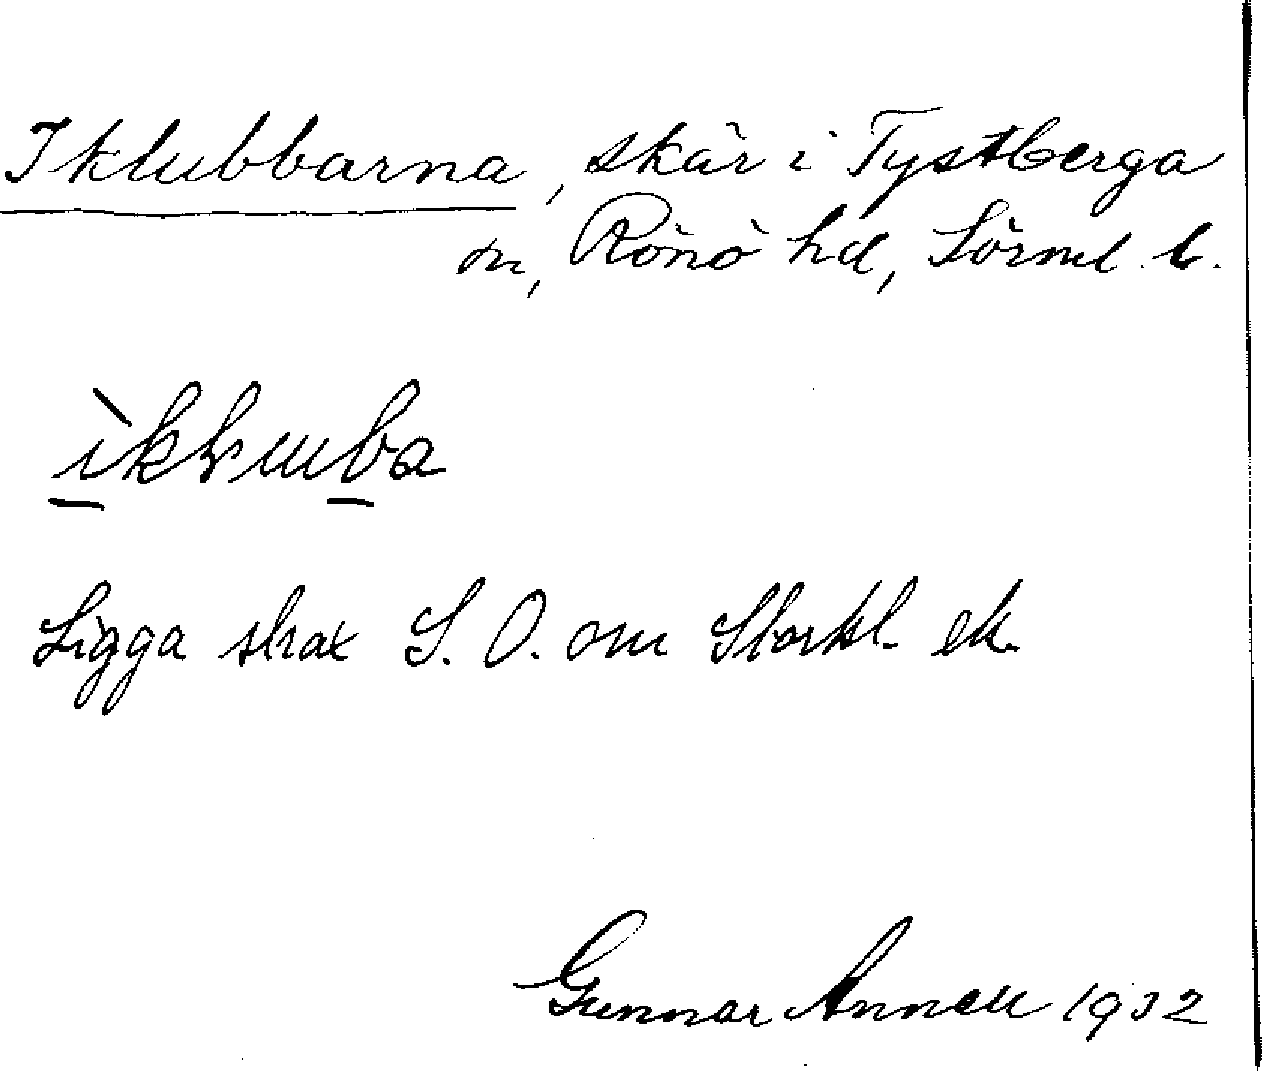 Iklubbarna, skär i Tystberga
sn, Rönö hd, Sörml. l.
Ligga strax S. O. om Storkl. ek.
Gunnar Annell 1932